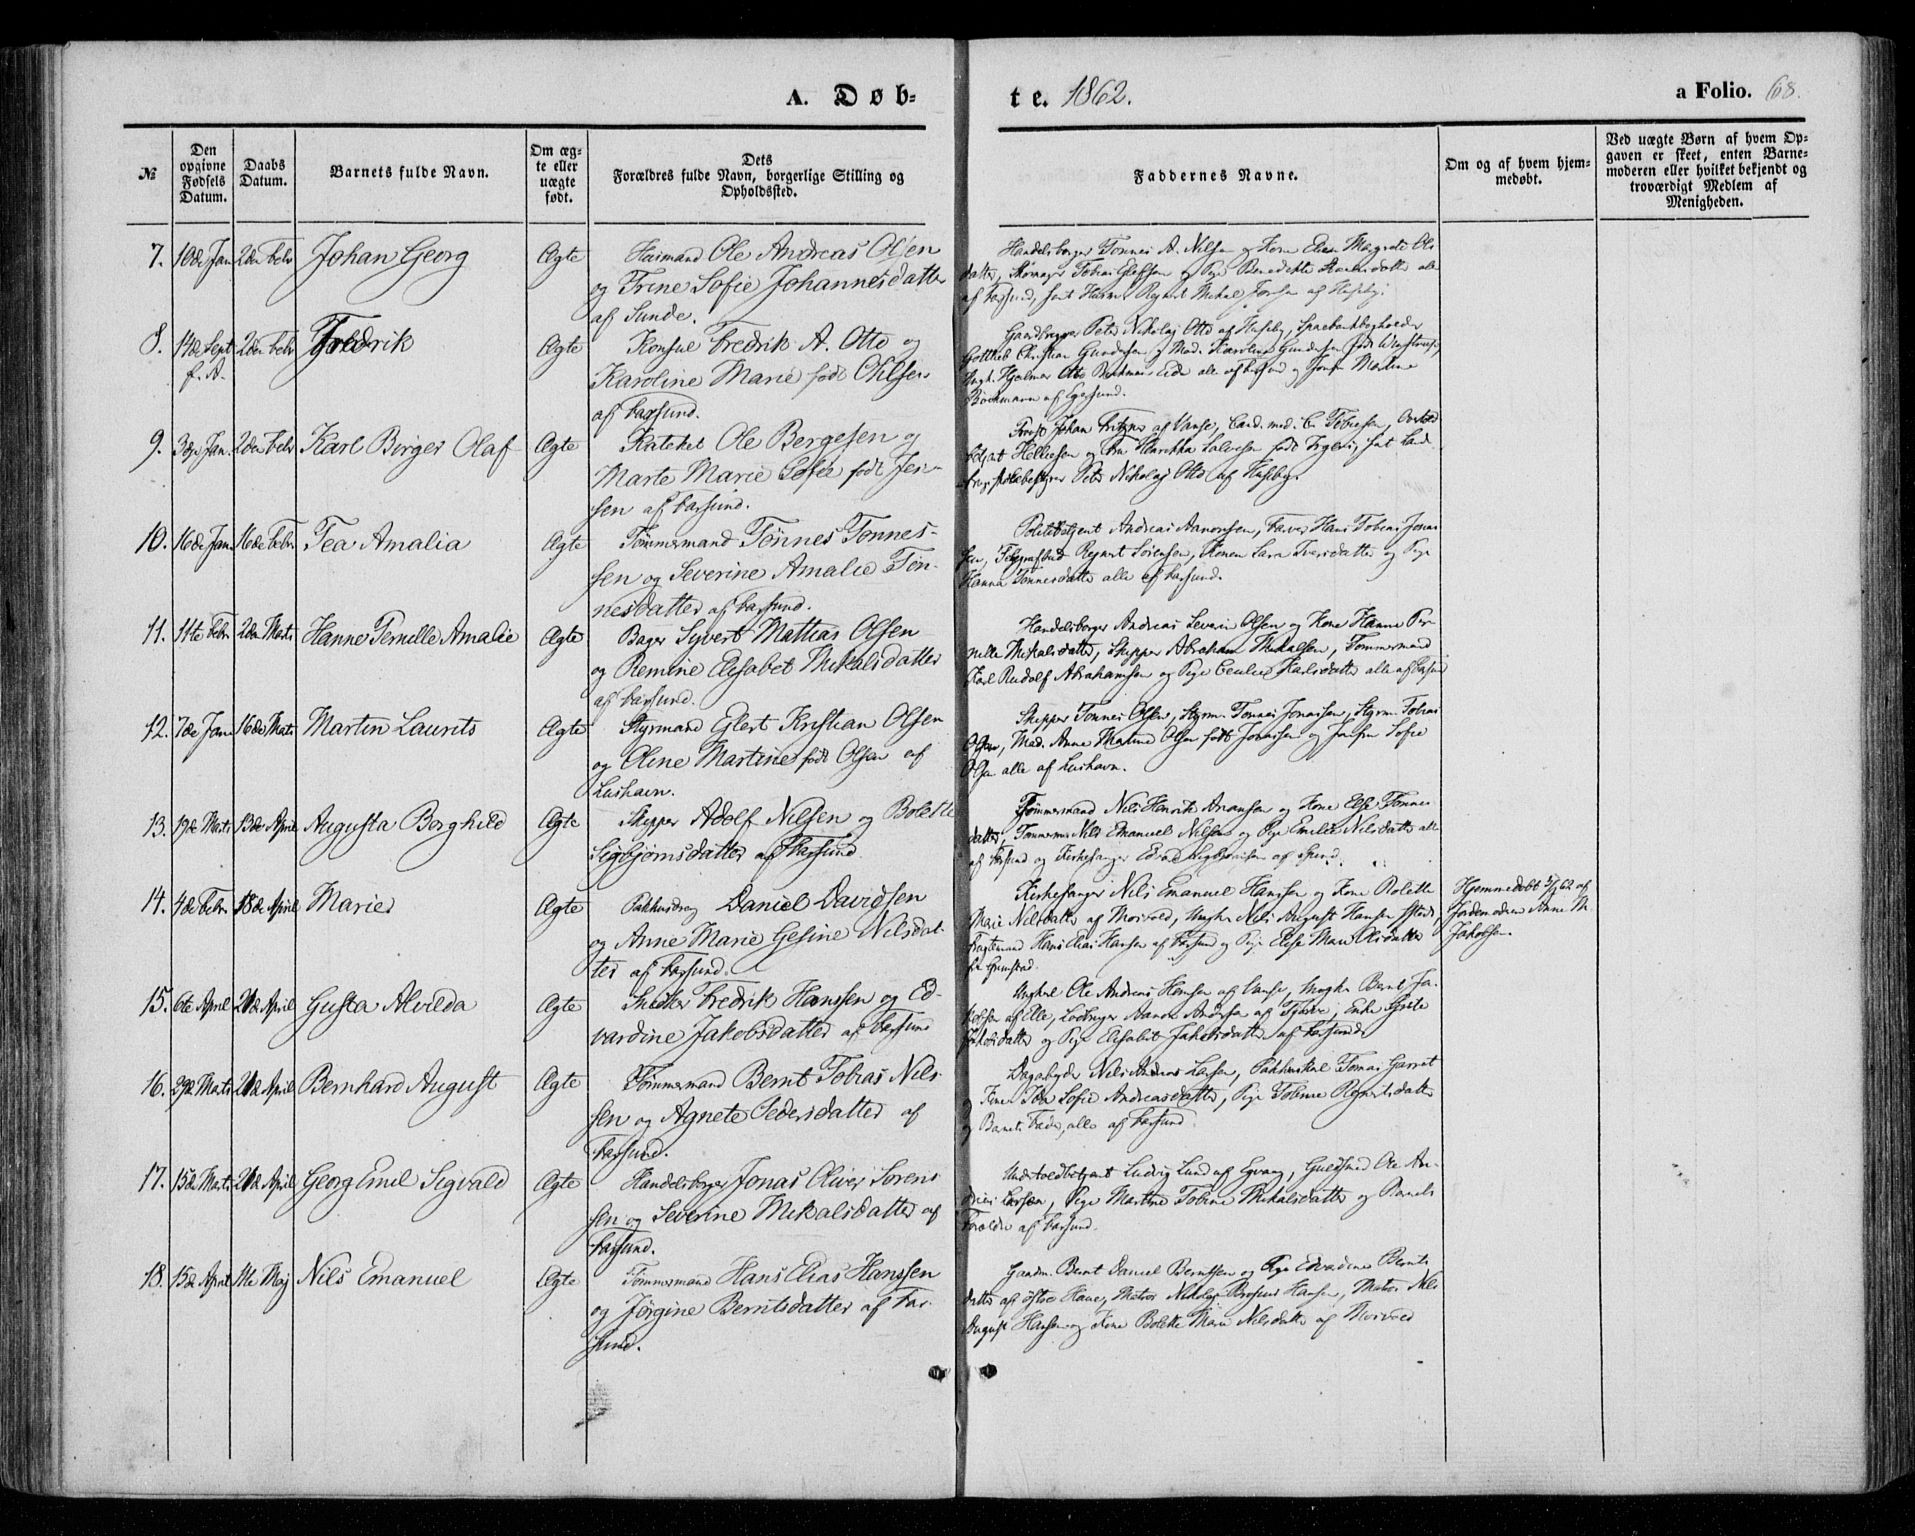 A. Døb-
te. 1862.
a Folio. 68.
№
Den opgivne Fødsels Datum.
Daabs Datum.
Barnets fulde Navn.
Om ægte eller uægte født.
Dets Forældres fulde Navn, borgerlige Stilling og Opholdssted.
Faddernes Navne.
Om og af hvem hjemmedøbt.
Ved uægte Børn af hvem Opgaven er skeet, enten Barnemoderen eller hvilket bekjendt og troværdigt Medlem af Menigheden.
7. 10de Jan 2den Febr Johan Georg Ægte Ole Andreas Olsen
og Trine Sofie Johannesdatter
af Sunde.
Handelsborger Tønnes A. Nilsen og Kone Elen Margrete Ols
datter, Tobias Gloffsen og Pige Benedikte
af Farsund, samt Regnert Mikal af Huseby.
8. 14de Sept 2den Febr Fredrik Ægte Konsul Fredrik A. Otto og
f. A.
Karoline Marie født Olsen
af Farsund.
Gaardbruger Peter Nikolaj Otto af Huseby, Sparebankbogholder
Gottlieb Christian Gundersen og Mad. Karoline Gundersen født
Ungk. Hjalmar Otto alle af Farsund og Jomfru Martine
Bøckmann af Egersund.
9. 3die Jan. 2den Febr Karl Børger Olaf Ægte Kateket Ole Bergesen og
Marte Marie Sofie født Jes-
sen af Farsund.
Provst Johan Fritzner af Vanse, Cand. med. C. Tobiesen,
Hellesen og Fru født samt Land-
Peter Nikolaj Otto af Huseby.
10. 16de Jan. 16de Febr Tea Amalia Ægte Tømmermand Tønnes Tønnes-
sen og Severine Amalie Tøn-
nesdatter af Farsund.
Politibetjent Andreas Aanonsen, Farver Hans Tobias Jonas
sen, Regnert Sørensen, Konen Sara Iversdatter og Pige
Hanna Tønnesdatter alle af Farsund.
11. 11te Febr 2den Marts Hanne Pernille Amalie Ægte Bager Syvert Mattias Olsen
og Remine Elisabet Mikalsdatter
af Farsund.
Handelsborger Andreas Severin Olsen og Kone Hanne Per
nille Mikalsdatter, Skipper Abraham Mikalsen, Tømmermand
Karl Rudolf Abrahamsen og Pige Karlsdatter alle af Farsund
12. 7de Jan 16de Marts Martin Laurits Ægte Styrmand Eglert Kristian Olsen
og Oline Martine født Olsen af
Lushavn.
Skipper Tønnes Olsen, Styrm. Tønnes Jonassen, Styrm. Tobias
Olsen, Mad. Anne Martine Olsen født Jonassen og Jomfru Sofie
Olsen alle af Lushavn.
13. 19de Marts 13de April Augusta Borghild Ægte Skipper Adolf Nilsen og Bolette
Sigbjørnsdatter af Farsund
Tømmermand Nils Henrik Aanansen og Kone Else Tønnes
datter, Tømmerm. Nils Emanuel Nilsen og Pige Emilie Nilsdatter alle
af Farsund og Kirkesanger Edvard Sigbjørnsen af
14. 4de Febr 18de April Marie Ægte Daniel Davidsen
og Anne Marie Gesine Nilsdat-
ter af Farsund.
Kirkesanger Nils Emanuel Hansen og Kone Bolette
Marie Nilsdatter af Norvold, Ungk. Nils August Hansen
Fragtemand Hans Elias Hansen af Farsund og Pige Else Marie Olsdatter
fra Grimstad.
Hjemmedøbt 62 af
Jordemoderen Anne M.
Jakobsen.
15. 6te April 21de April Gusta Alvilda Ægte Fredrik Hanssen og Ed-
vardine Jakobsdatter af Farsund
Ungkal Ole Andreas Hansen af Vanse, Ungk. Bernt Ja-
kobsen af Elle, Lodtager Andersen af Enke
Jakobsdatter og Pige Elisabet Jakobsdatter af Farsund
16. 29de Marts 21de April Bernhard August Ægte Tømmermand Bernt Tobias Nils-
sen og Agnete Pedersdatter af
Farsund.
Nils Andreas Larsen, Tomas Garret
og Kone Ida Sofie Andreasdatter, Pige Tobine Regnertsdatter
og Barnets Fader, alle af Farsund.
17. 15de Marts 21de April Georg Emil Sigvald Ægte Handelsborger Jonas Oliver Sørens
sen og Severine Mikalsdatter af
Farsund.
Undertoldbetjent Ludvig Lund af Egvaag, Guldsmed Ole An-
dreas Larsen, Pige Martine Tobine Mikalsdatter og Barnets
Forældre af Farsund.
18. 15de April 11te Maj Nils Emanuel Ægte Tømmermand Hans Elias Hanssen
og Jørgine Berntsdatter af Far-
sund.
Gaardm. Bernt Daniel Berntsen og Pige Edvardine Bernts
datter af Østre Hauge, Matros Nikolaj Hansen, Matros Nils
August Hansen og Kone Bolette Marie Nilsdatter af Norvold